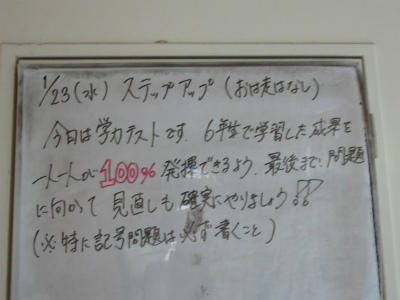 1/23(水) ステップアップ (おは走はなし)
今日は学力テストです。6年生で学習した成果を
一人一人が100%発揮できるよう、最後まで問題
に向かって見直しも確実にやりましょう!!
(※特に記号問題は必ず書くこと)